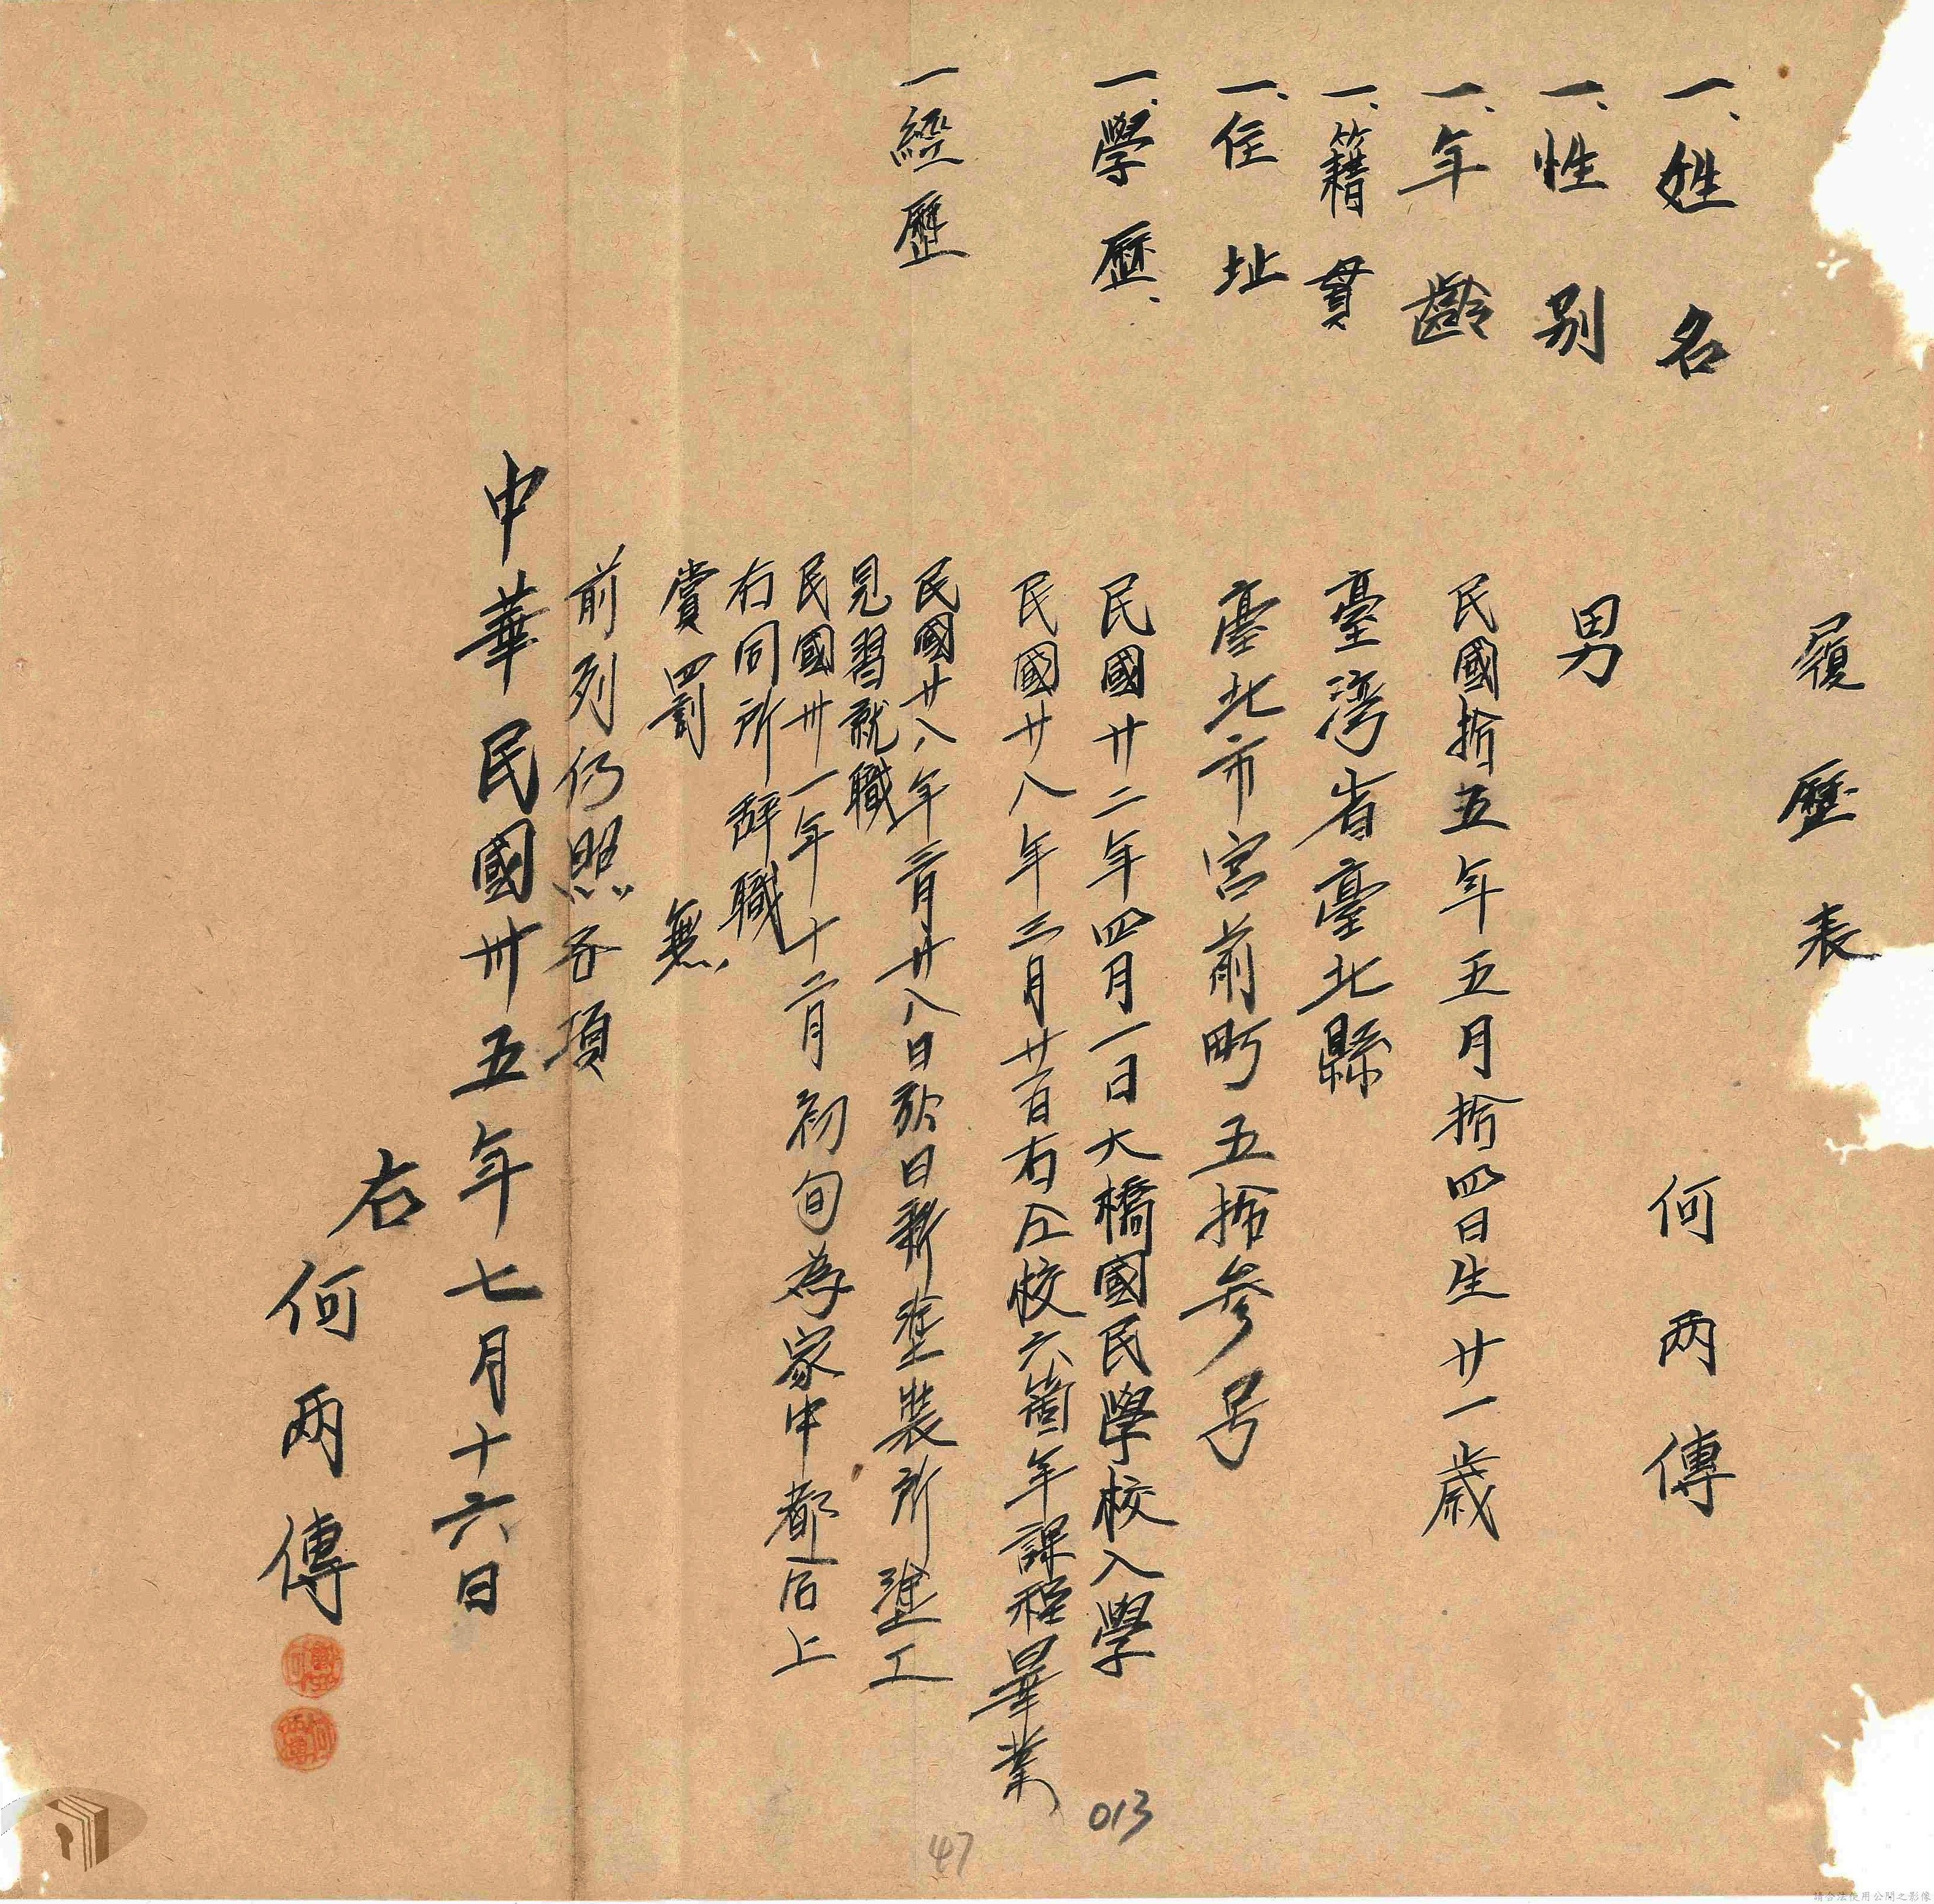 履歷表
一、姓名 何两傳
一、性别 男
一、年齡 民國拾五年五月拾四日生廿一歲
一、籍貫 臺湾省臺北縣
一、住址 臺北市宮前町五拾参号
一、學歷、 民國廿二年四月一日大橋國民學校入學
民國廿八年三月廿 日右 校六箇年課程畢業
一經歷 民國廿八年三月廿八日於日新塗裝所塗工
見習就職
民國卅一年十二月初旬為家中都合上
右同所辞職
賞罰 無
前列仍照各項
中華民國卅五年七月十六日
右 何两傳
013
47
請合法使用公開之影像